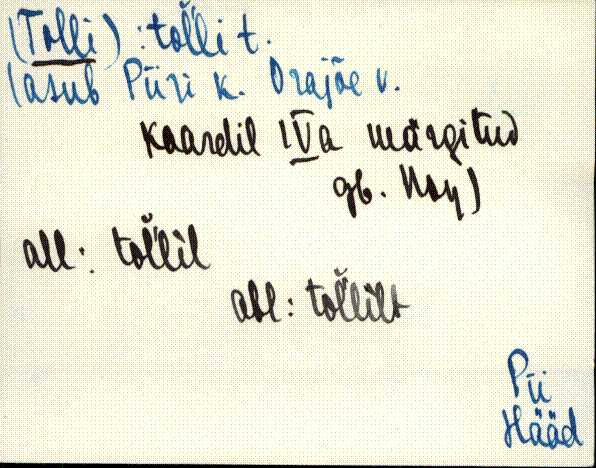 (Tolli) : toľ̆li t.
(asub Piiri k. Orajõe v.
Kaardil IVa märgitud
gb. Noy)
all: toľ̆lil
abl: toľ̆lilt
Pii
Hääd